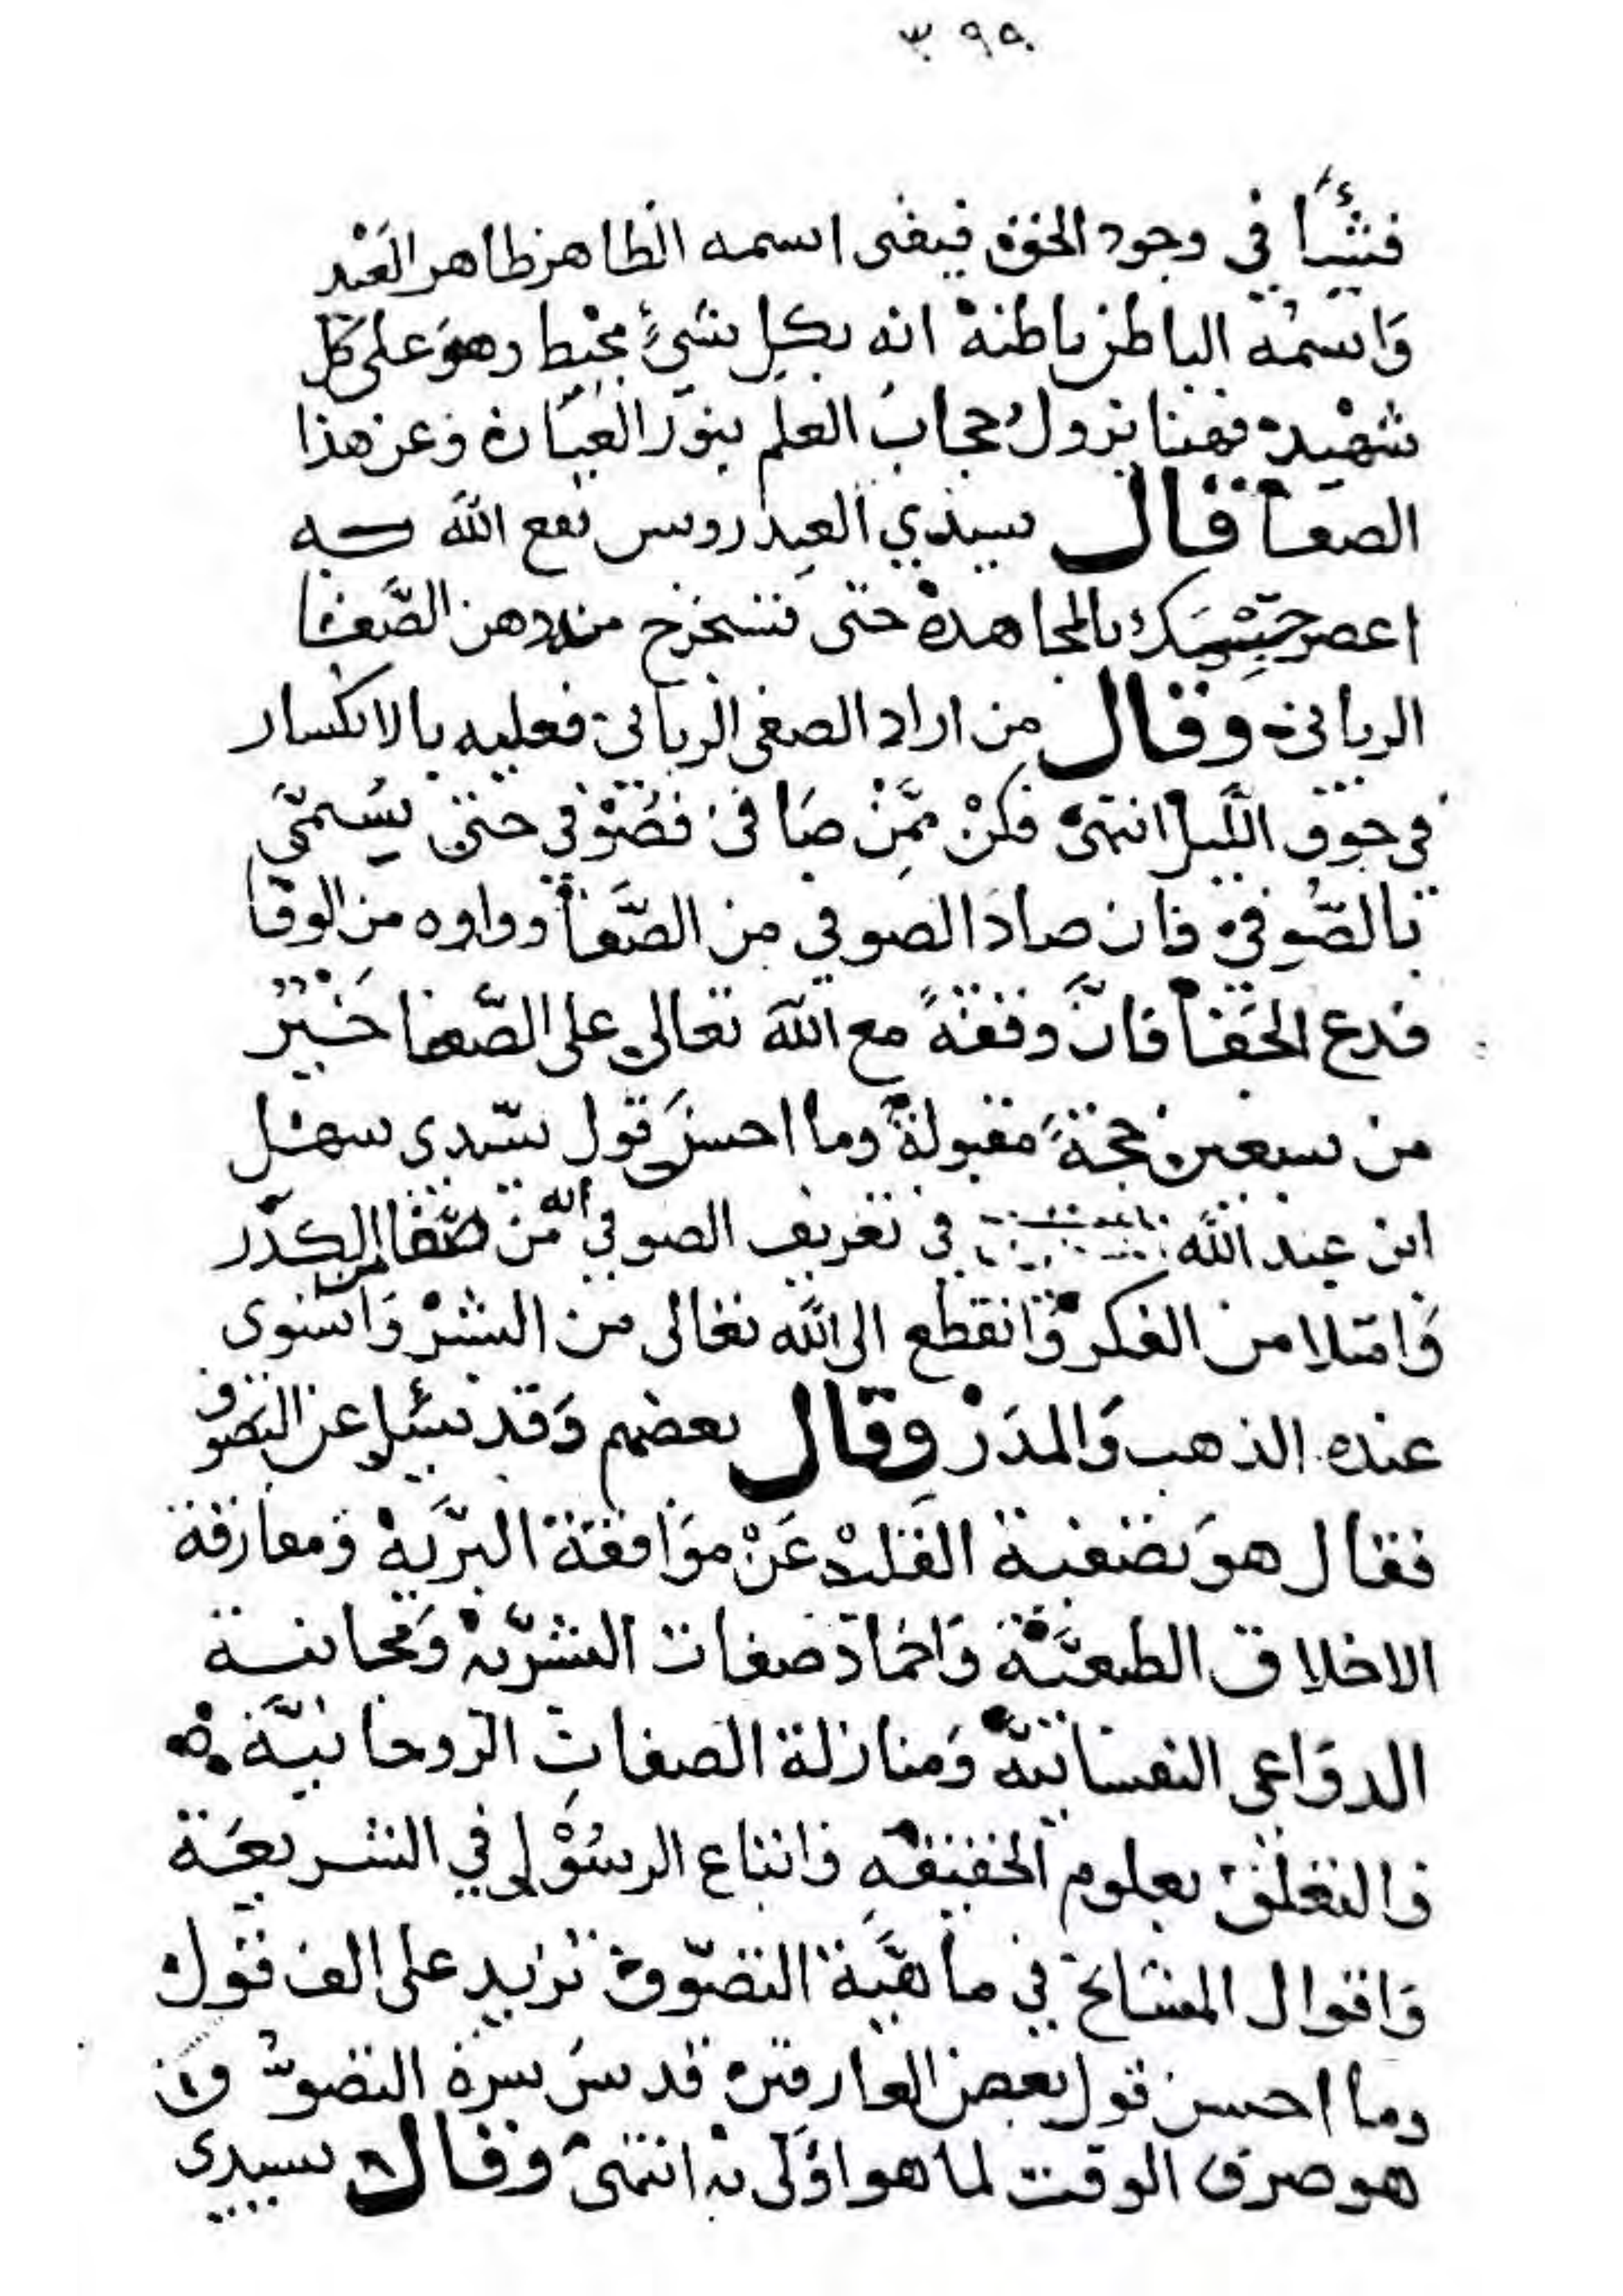 ٣٩٩
فشيأ في وجود الحق فيفنى اسمه الظاهر ظاهر العبد
واسمه الباطن باطنه انه بكل شيء محيط وهو على كل
شهيد فهنا يزول حجاب العلم بنور العيان وعن هذا
الصفا قال سيدي العيدروس نفع الله به
اعصر جسمك بالمجاهدة حتى تستخرج منه دهن الصفا
الرباني وقال من اراد الصفى الرباني فعليه بالانكسار
في جوف الليل انتهى فكن ممن صافى فصوفي حتى يسمى
بالصوفي فان صاد الصوفي من الصفا وواوه من الوفا
فدع الجفا فان وقفة مع الله تعالى على الصفا خير
من سبعين حجة مقبولة وما احسن قول سيدي سهل
ابن عبد الله في تعريف الصوفي انه من صفا من الكدر
وامتلا من الفكر وانقطع الى الله تعالى من البشر واستوى
عنده الذهب والمدر وقال بعضهم وقد سئل عن التصوف
فقال هو تصفية القلب عن موافقة البرية ومفارقة
الاخلاق الطبعية واخماد صفات البشرية ومجانبة
الدواعي النفسانية ومنازلة الصفات الروحانية
والتعلق بعلوم الحقيقة واتباع الرسول في الشريعة
واقوال المشايخ في ماهية التصوف تزيد على الف قول
وما احسن قول بعض العارفين قدس سره التصوف
هو صرف الوقت لما هو اولى به انتهى وقال سيدي